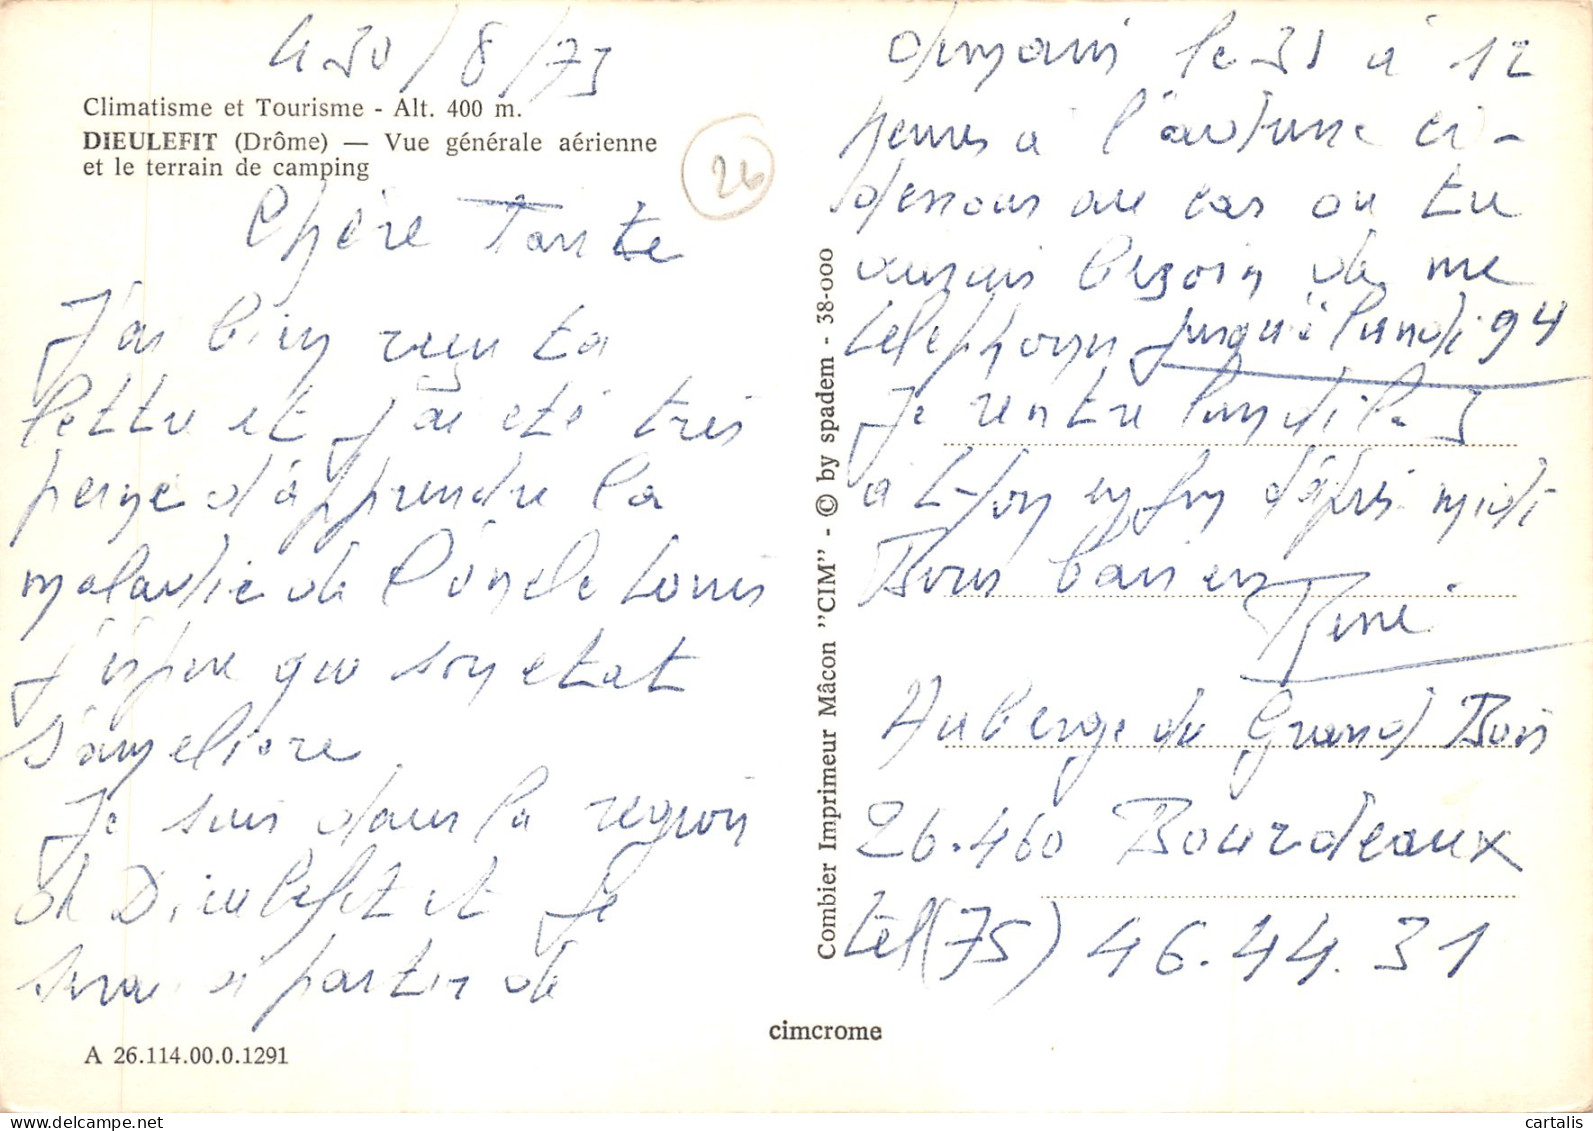 30/8/73
Climatisme et Tourisme - Alt. 400 m.
DIEULEFIT (Drôme) — Vue générale aérienne
et le terrain de camping
26
Chère Tante
J'ai bien reçu ta
lettre et j'ai été très
peiné d'apprendre la
maladie de l'oncle Louis
j'espère que son état
s'améliore
Je suis dans la région
de Dieulefit et je
serai à partir de
demain le 31 à 12
heures à l'auberge ci-
dessous au cas où tu
aurais besoin de me
telephoner jusqu'à lundi 9H
Je rentre lundi le 3
à Lyon en fin d'après midi
Bons baisers
René
Auberge du Grand Bois
26.460 Bourdeaux
tel (75) 46.44.31
Combier Imprimeur Mâcon "CIM" - © by spadem - 38-000
cimcrome
A 26.114.00.0.1291
cartalis